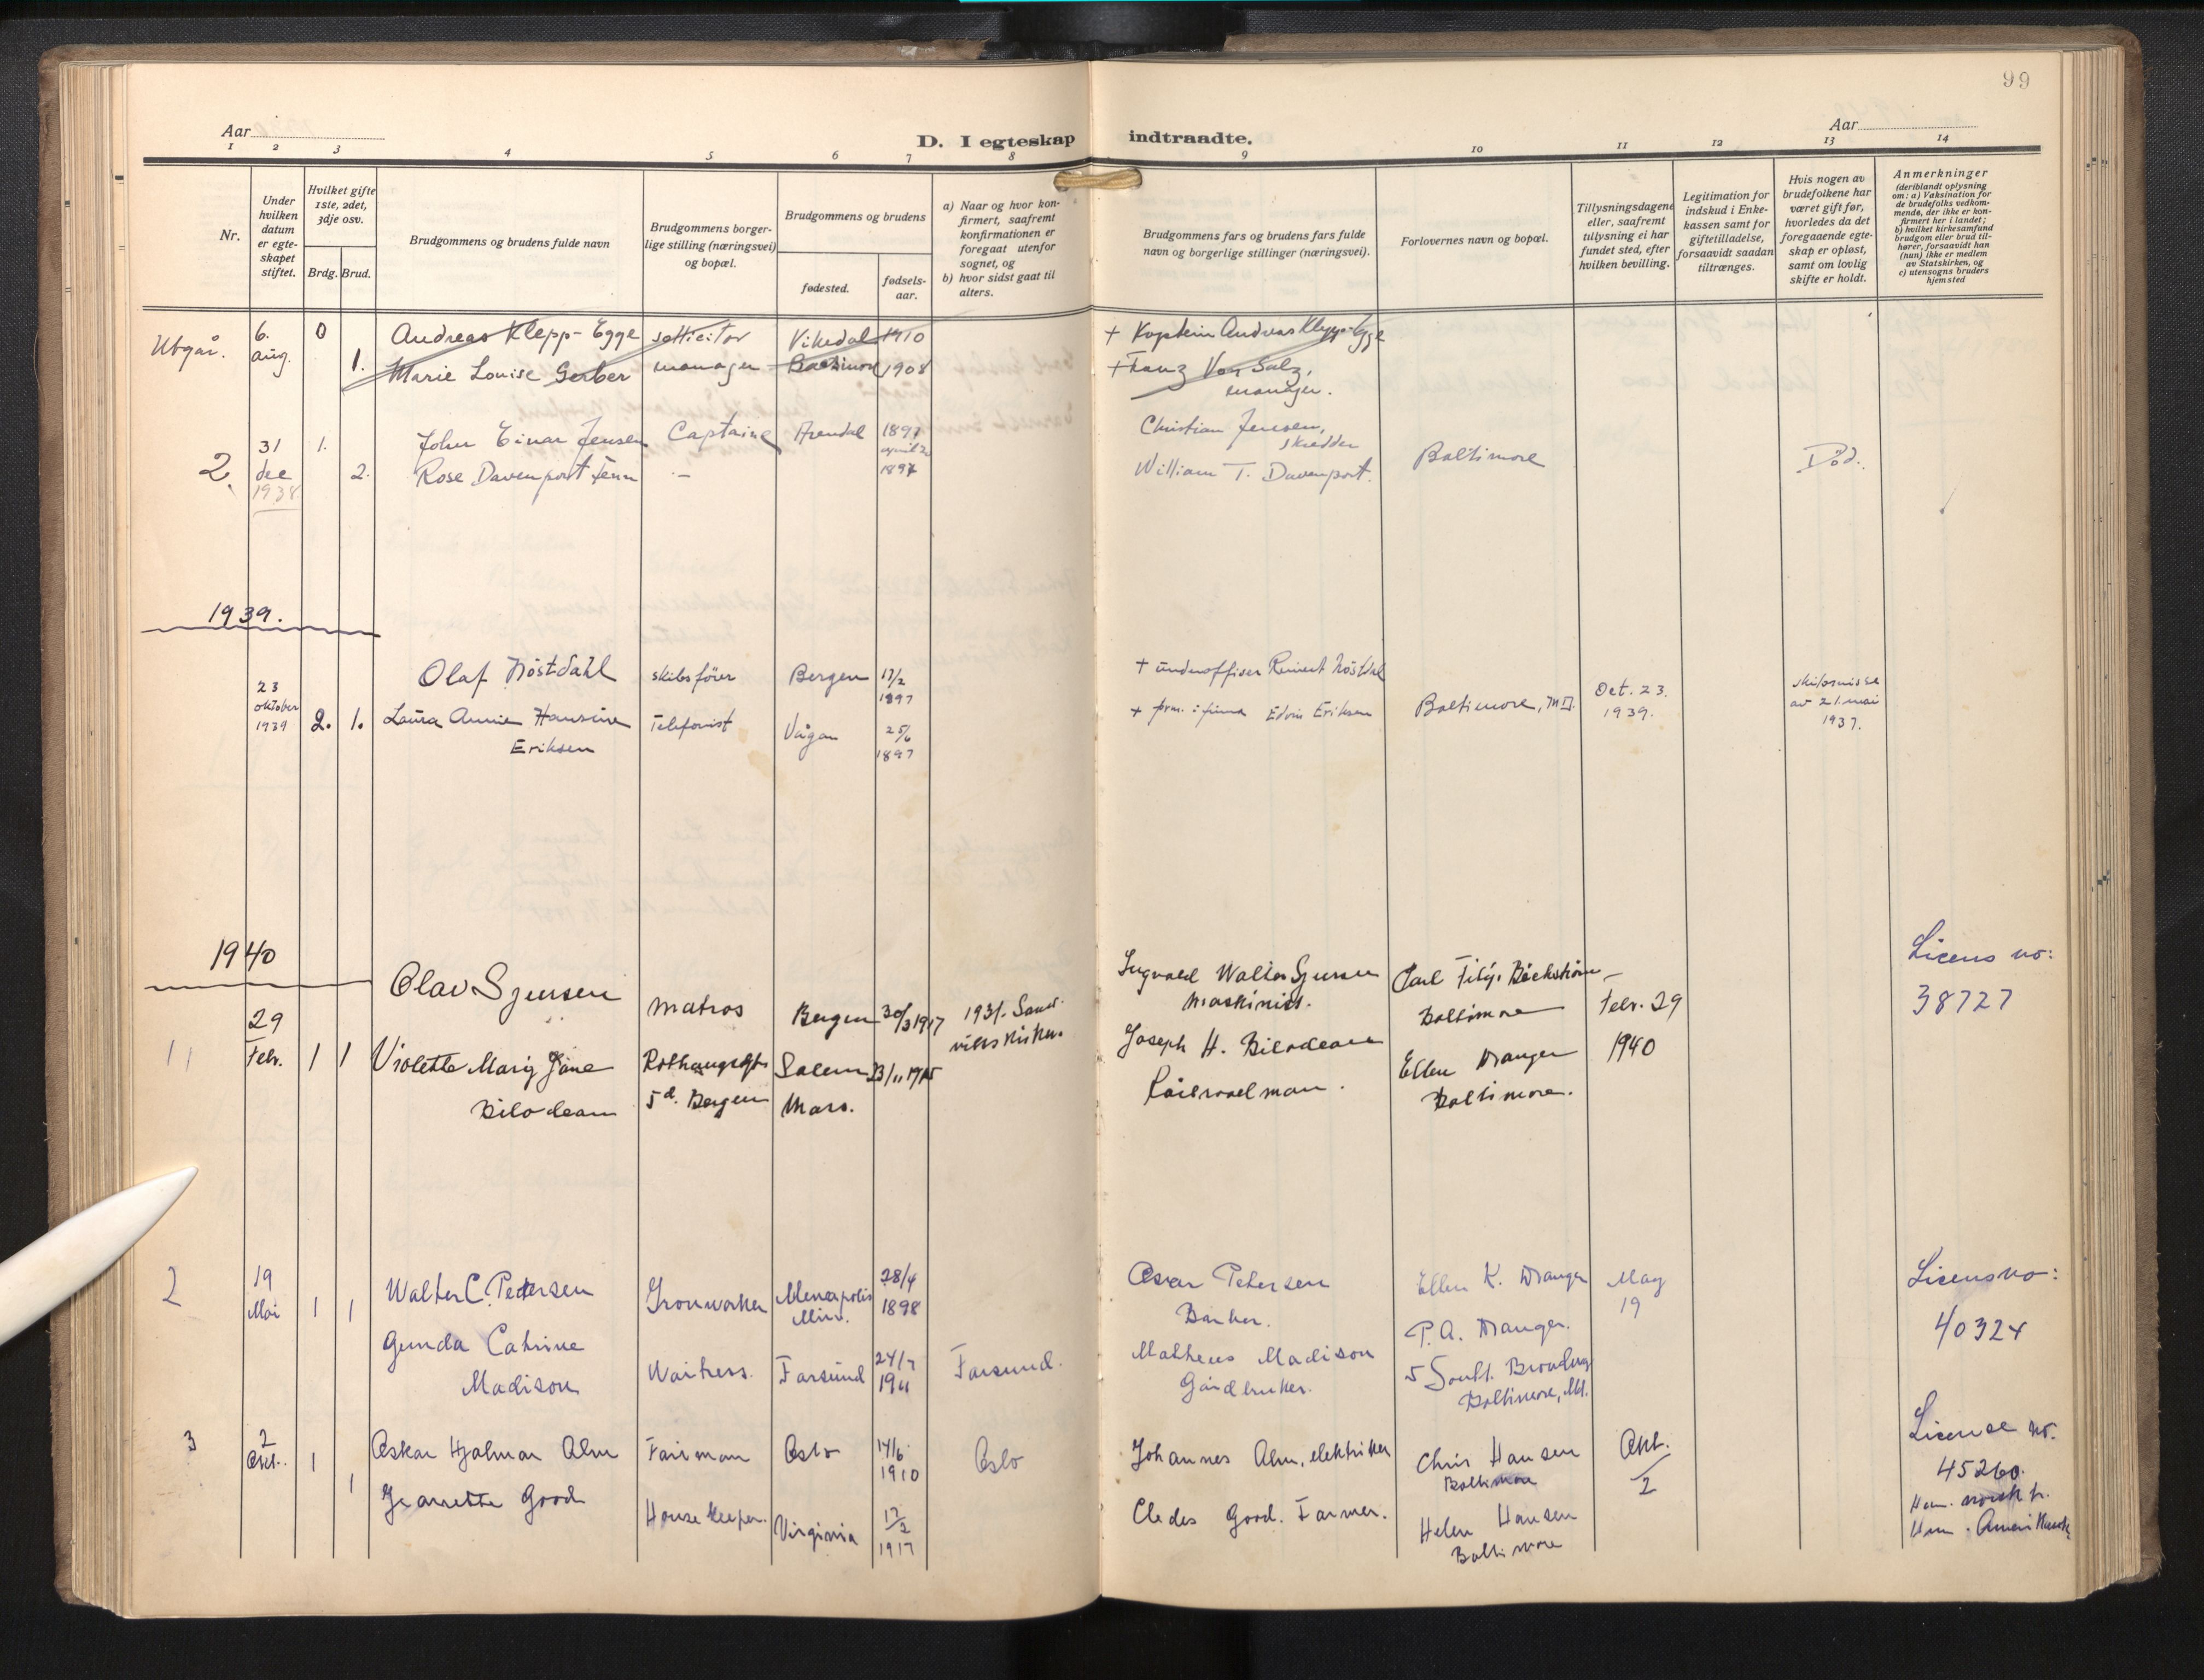 99
Aar
Aar
D. I egteskap indtraadte.
1 2 3 4 5 6 7 8 9 10 11 12 13 14
Nr.
Under
hvilken
datum
er egte-
skapet
stiftet.
Hvilket gifte
1ste, 2det,
3dje osv.
Brdg. Brud.
Brudgommens og brudens fulde navn
Brudgommens borger-
lige stilling (næringsvei)
og bopæl.
Brudgommens og brudens
fødested.
fødsels-
aar.
a) Naar og hvor kon-
firmert, saafremt
konfirmationen er
foregaat utenfor
sognet, og
b) hvor sidst gaat til
alters.
Brudgommens fars og brudens fars fulde
navn og borgerlige stillinger (næringsvei).
Forlovernes navn og bopæl.
Tillysningsdagene
eller, saafremt
tillysning ei har
fundet sted, efter
hvilken bevilling.
Legitimation for
indskud i Enke-
kassen samt for
giftetilladelse,
forsaavidt saadan
tiltrænges.
Hvis nogen av
brudefolkene har
været gift før,
hvorledes da det
foregaaende egte-
skap er opløst,
samt om lovlig
skifte er holdt.
Anmerkninger
(deriblandt oplysning
om: a) Vaksination for
de brudefolks vedkom-
mende, der ikke er kon-
firmert her i landet;
b) hvilket kirkesamfund
brudgom eller brud til-
hører, forsaavidt han
(hun) ikke er medlem
av Statskirken, og
c) utensogns bruders
hjemsted
Utgår. 6. aug. 0 1.
Andreas Klepp-Egge sollicitor Vikedal 1910
Marie Louise Gerber manager 1908
+ Kaptein Andreas Klepp-Egge
+ Franz Von Salz,
manager.
2. 31 dec 1938 1. 2.
John Einar Jensen Captaine Arendal 1897
Rose Davenport Fenn – april 1897
Christian Jensen,
skredder
William T. Davenport. Baltimore Död.
1939.
23 oktober 1939 2. 1.
Olaf Nöstdahl skibsförer Bergen 17/2 1897
Laura Annie Hansine Eriksen Telefonist Vågan 25/6 1897
+ underoffiser Reinert Nöstdal
+ Edvin Eriksen
Baltimore, MD. Oct. 23. 1939.
av 21. mai
1937.
1940
11 29 Febr. 1 1
Olav Sjursen matros Bergen 30/3 1917 1931. Sand-
vikskirken.
Violette Mary Jane Bilodeau 5d. Bergen Salem Mass. 23/11 1915
Ingvald Walter Sjursen
Maskinist.
Joseph H. Bilodeau
Railroadman.
Baltimore
Ellen Wanger
Baltimore.
Febr. 29
1940
Licens no:
38727
2 19 Mai 1 1
Walter C. Petersen Ironworker Meneapolis Min. 28/4 1898
Gunda Catrine Madison Waitress. Farsund 24/7 1911 Farsund.
Oscar Petersen
Banker.
Matheus Madison
Gårdbruker.
Ellen K. Wanger
P.A. Wanger.
5 South Broadway
Baltimore, Md.
May
19
Licensno:
40324
3 2 Okt. 1 1
Oskar Hjalmar Alm Fairman Oslo 14/6 1910 Oslo
Jeanette Good House keeper. Virginia 17/2 1917
Johannes Alm, elektriker
Cledes Good. Farmer.
Chris Hansen
Baltimore
Helen Hansen
Baltimore
Okt.
2
License no.
45260.
Han. norsk
Hun. Amerikansk